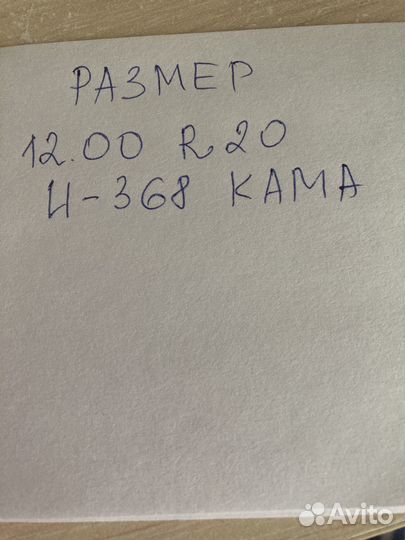 РАЗМЕР
12.00 R 20
И-368 КАМА
Avito